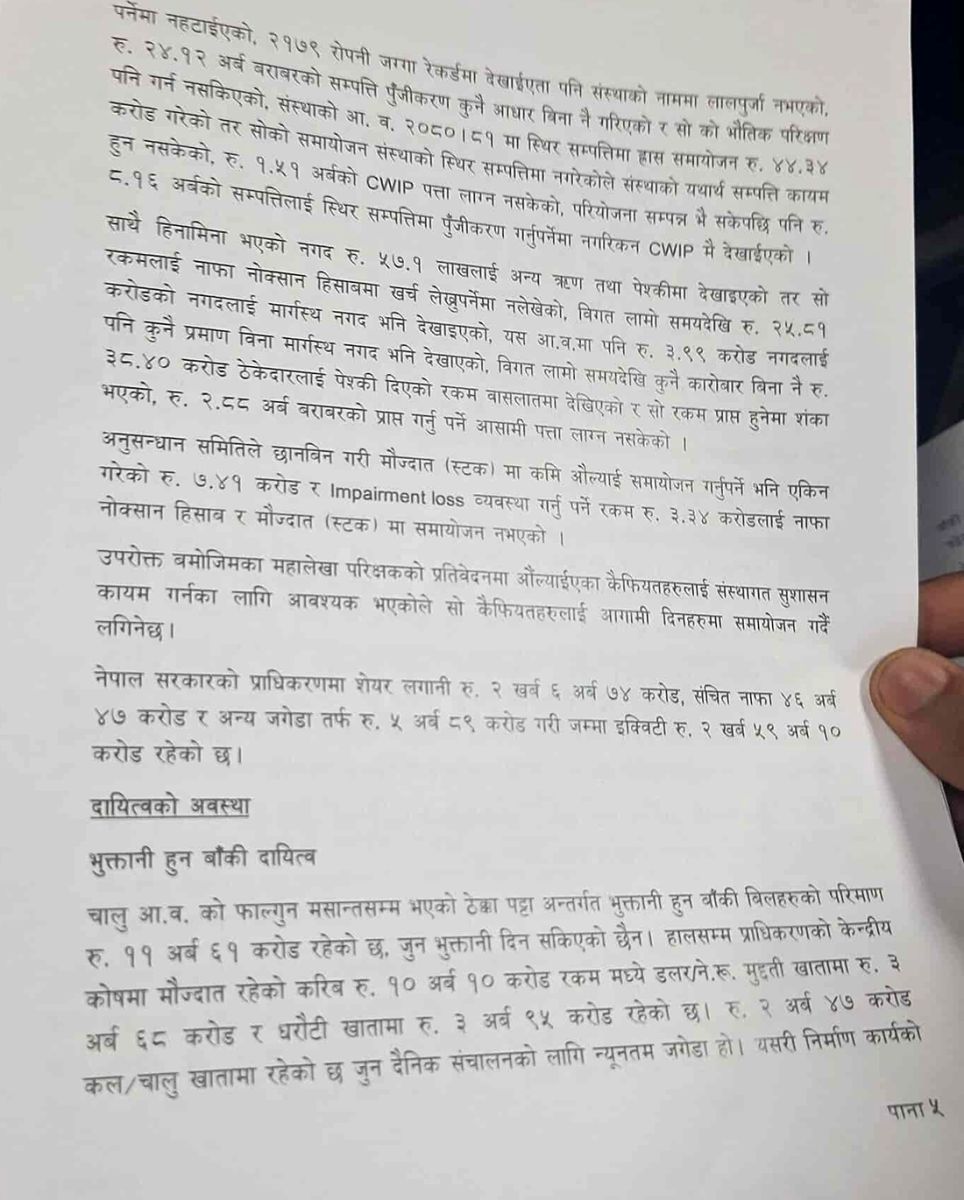 पर्नेमा नहटाईएको, २१७९ रोपनी जग्गा रेकर्डमा देखाईएता पनि संस्थाको नाममा लालपुर्जा नभएको,
रु. २४.१२ अर्ब बराबरको सम्पत्ति पुँजीकरण कुनै आधार बिना नै गरिएको र सो को भौतिक परिक्षण
पनि गर्न नसकिएको, संस्थाको आ. व. २०८०।८१ मा स्थिर सम्पत्तिमा ह्रास समायोजन रु. ४४.३४
करोड गरेको तर सोको समायोजन संस्थाको स्थिर सम्पत्तिमा नगरेकोले संस्थाको यथार्थ सम्पत्ति कायम
हुन नसकेको, रु. १.५१ अर्बको CWIP पत्ता लाग्न नसकेको, परियोजना सम्पन्न भै सकेपछि पनि रु.
८.१६ अर्बको सम्पत्तिलाई स्थिर सम्पत्तिमा पुँजीकरण गर्नुपर्नेमा नगरिकन CWIP मै देखाईएको ।
साथै हिनामिना भएको नगद रु. ५७.१ लाखलाई अन्य ऋण तथा पेश्कीमा देखाइएको तर सो
रकमलाई नाफा नोक्सान हिसाबमा खर्च लेख्नुपर्नेमा नलेखेको, विगत लामो समयदेखि रु. २५.८१
करोडको नगदलाई मार्गस्थ नगद भनि देखाइएको, यस आ.व.मा पनि रु. ३.९९ करोड नगदलाई
पनि कुनै प्रमाण विना मार्गस्थ नगद भनि देखाएको, विगत लामो समयदेखि कुनै कारोबार बिना नै रु.
३८.४० करोड ठेकेदारलाई पेश्की दिएको रकम वासलातमा देखिएको र सो रकम प्राप्त हुनेमा शंका
भएको, रु. २.८८ अर्ब बराबरको प्राप्त गर्नु पर्ने आसामी पत्ता लाग्न नसकेको ।
अनुसन्धान समितिले छानबिन गरी मौज्दात (स्टक) मा कमि औल्याई समायोजन गर्नुपर्ने भनि एकिन
गरेको रु. ७.४१ करोड र Impairment loss व्यवस्था गर्नु पर्ने रकम रु. ३.३४ करोडलाई नाफा
नोक्सान हिसाब र मौज्दात (स्टक) मा समायोजन नभएको ।
उपरोक्त बमोजिमका महालेखा परिक्षकको प्रतिवेदनमा औंल्याईएका कैफियतहरुलाई संस्थागत सुशासन
कायम गर्नका लागि आवश्यक भएकोले सो कैफियतहरुलाई आगामी दिनहरुमा समायोजन गर्दै
लगिनेछ।
नेपाल सरकारको प्राधिकरणमा शेयर लगानी रु. २ खर्ब ६ अर्ब ७४ करोड, संचित नाफा ४६ अर्ब
४७ करोड र अन्य जगेडा तर्फ रु. ५ अर्ब ८९ करोड गरी जम्मा इक्विटी रु. २ खर्ब ५९ अर्ब १०
करोड रहेको छ।
दायित्वको अवस्था
भुक्तानी हुन बाँकी दायित्व
चालु आ.व. को फाल्गुन मसान्तसम्म भएको ठेक्का पट्टा अन्तर्गत भुक्तानी हुन बाँकी बिलहरुको परिमाण
रु. ११ अर्ब ६१ करोड रहेको छ, जुन भुक्तानी दिन सकिएको छैन। हालसम्म प्राधिकरणको केन्द्रीय
कोषमा मौज्दात रहेको करिब रु. १० अर्ब १० करोड रकम मध्ये डलर/ने.रू. मुद्दती खातामा रु. ३
अर्ब ६८ करोड र धरौटी खातामा रु. ३ अर्ब ९५ करोड रहेको छ। रु. २ अर्ब ४७ करोड
कल/चालु खातामा रहेको छ जुन दैनिक संचालनको लागि न्यूनतम जगेडा हो। यसरी निर्माण कार्यको
पाना ५